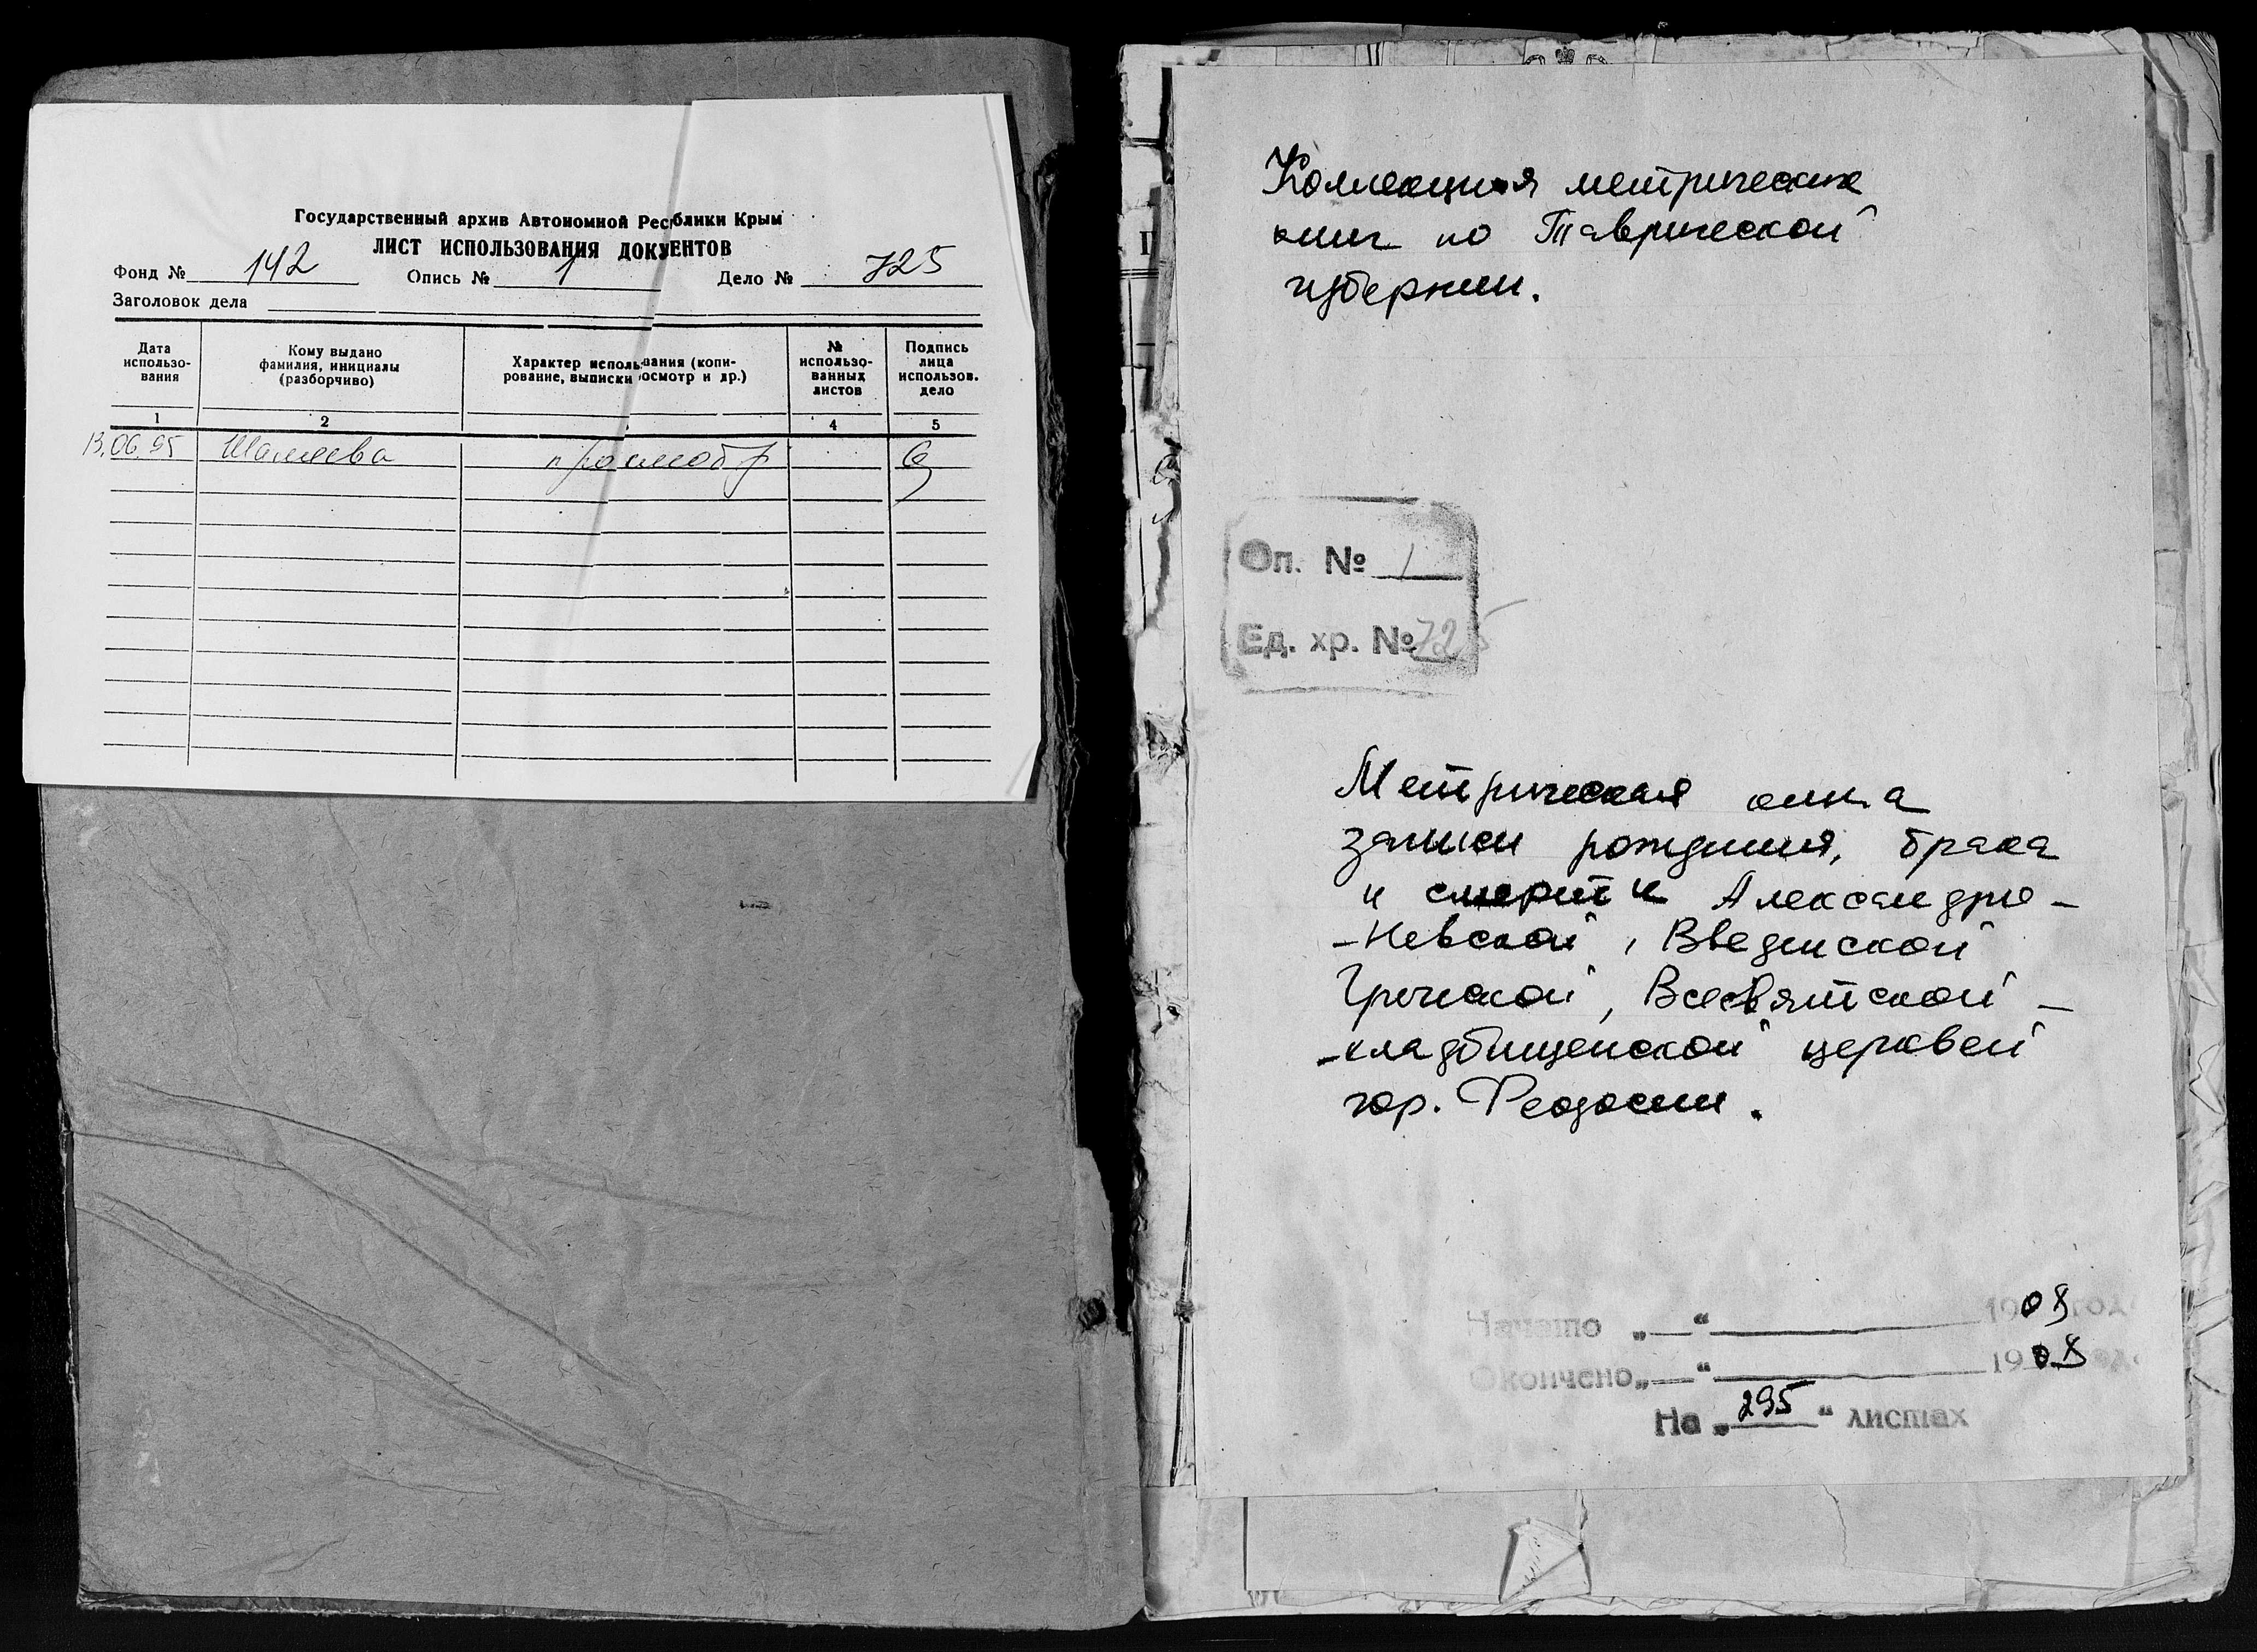 Государственный архив Автономной Респблики Крым
ЛИСТ ИСПОЛЬЗОВАНИЯ ДОКУЕНТОВ
Фонд № 142 Опись № 1 Дело № 725
Заголовок дела
Дата использо-вания
Кому выдано фамилия, инициалы (разборчиво)
Характер использвания (копи-рование, выписки осмотр и др.)
№ использо-ванных листов
Подпись лица использов. дело
1 2 4 5
13.06.95 просмотр
Коллекция метрических
книг по Таврической
губернии.
Оп. № 1
Ед. хр. № 725
Метрическая книга
записи рождения, брака
и смерти Александро-
-Невской, Введенской
Греческой, Всесвятской-
-кладбищенской церквей
гор. Феодосии.
Начато „ “ 1908 года
Окончено „ “ 1908 года
На „ 295 “ листах